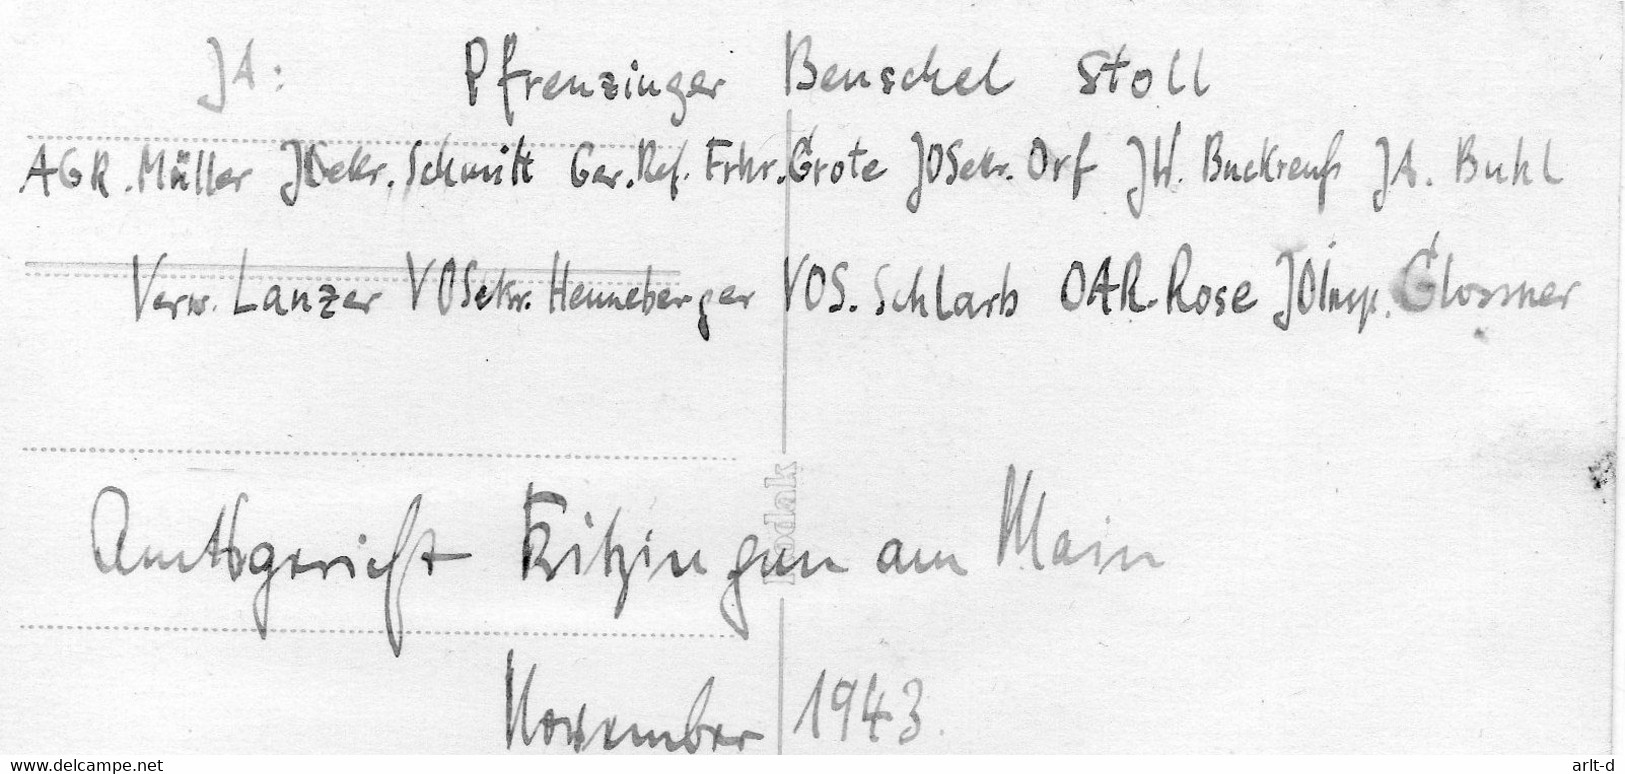 JA: Pfrenzinger Benschel Stoll
AGR. Müller JOSekr. Schmitt Ger.Ref. Frhr. Grote JOSekr. Orf JW. Buckreuß JA. Buhl
Verw. Lanzer VOSekr. Henneberger VOS. Schlarb OAR. Rose JOInsp. Glossner
Amtsgericht Kitzingen am Main
Kodak
November 1943.
www.delcampe.net
arlt-d